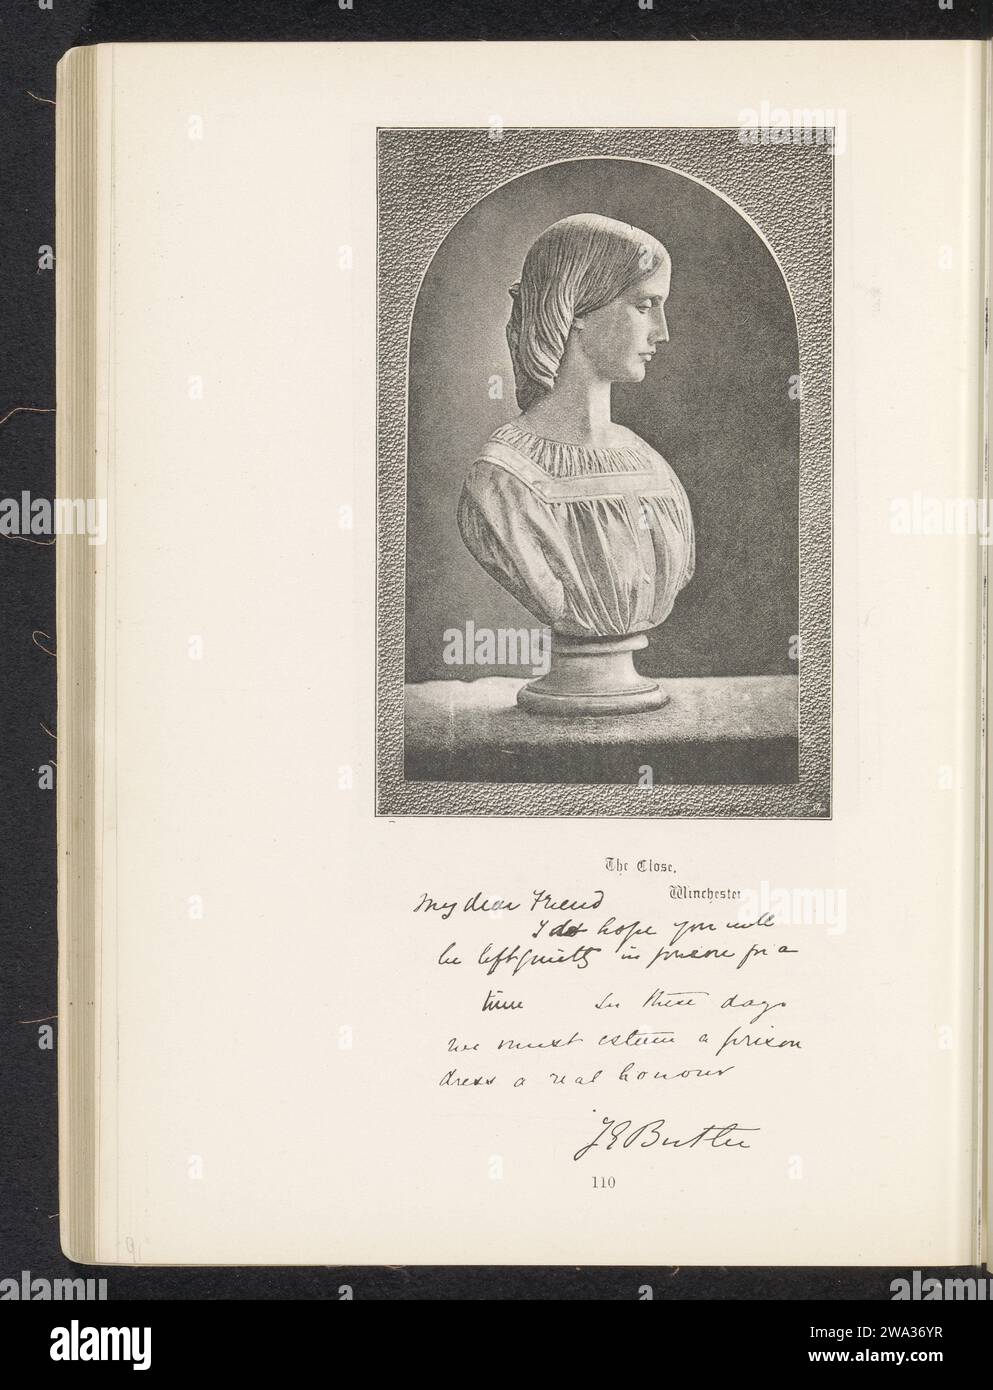 The Close,
Winchester
My dear Friend
I do hope you will
be left quietly in prison for a
time In these days
we must esteem a prison
dress a real honour
J E Butler
110
alamy
Image ID: 2WA36YR
www.alamy.com